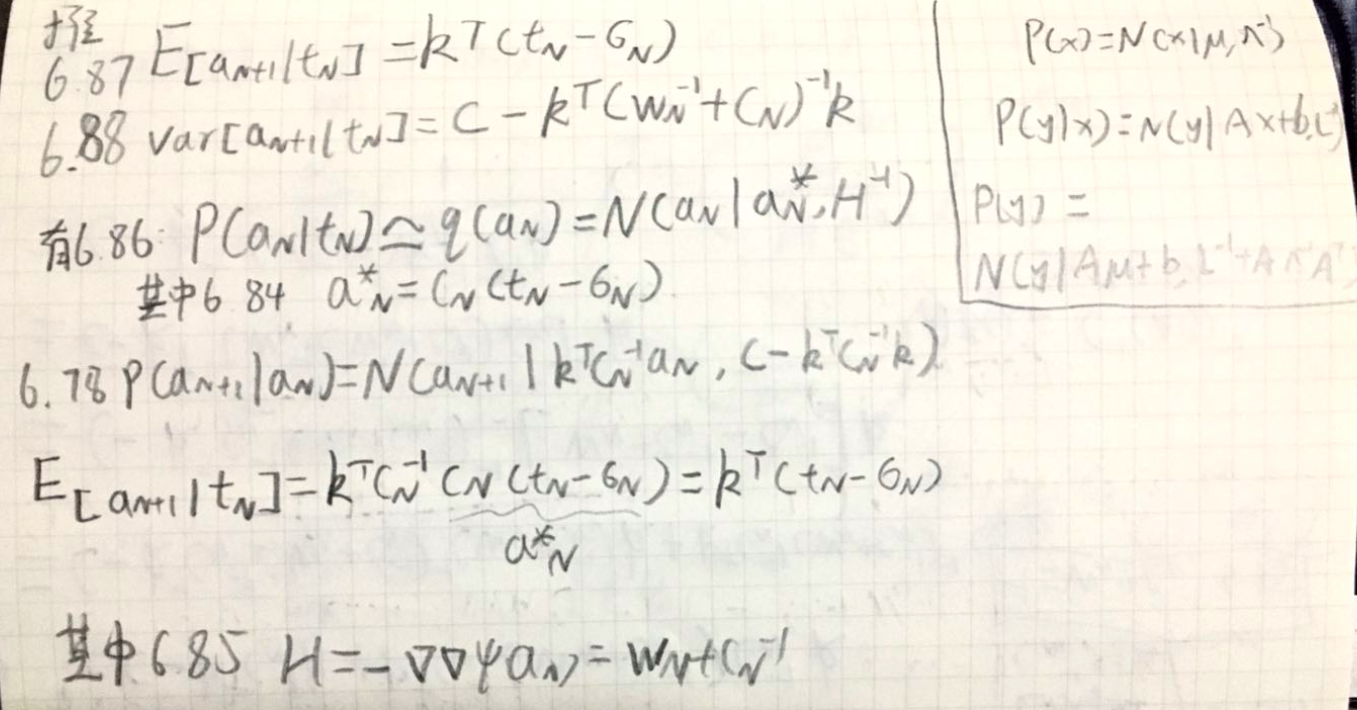 推
6.87 E[aN+1|tN] = k^T(tN-6N)
6.88 var[aN+1|tN] = C - k^T(WN^-1+CN)^-1k
有6.86: P(aN|tN)≃q(aN)=N(aN|a*N,H^-1)
其中6 84 a*N=CN(tN-6N)
6.78 P(aN+1|aN)=N(aN+1|k^TCN^-1aN, C-k^TCN^-1k)
E[aN+1|tN]=k^TCN^-1CN(tN-6N)=k^T(tN-6N)
a*N
其中6.85 H=-∇∇ψ(aN)=WN+CN^-1
P(x)=N(x|μ,Λ^-1)
P(y|x)=N(y|Ax+b,L^-1)
P(y)=
N(y|Aμ+b,L^-1+AΛ^-1A^T)